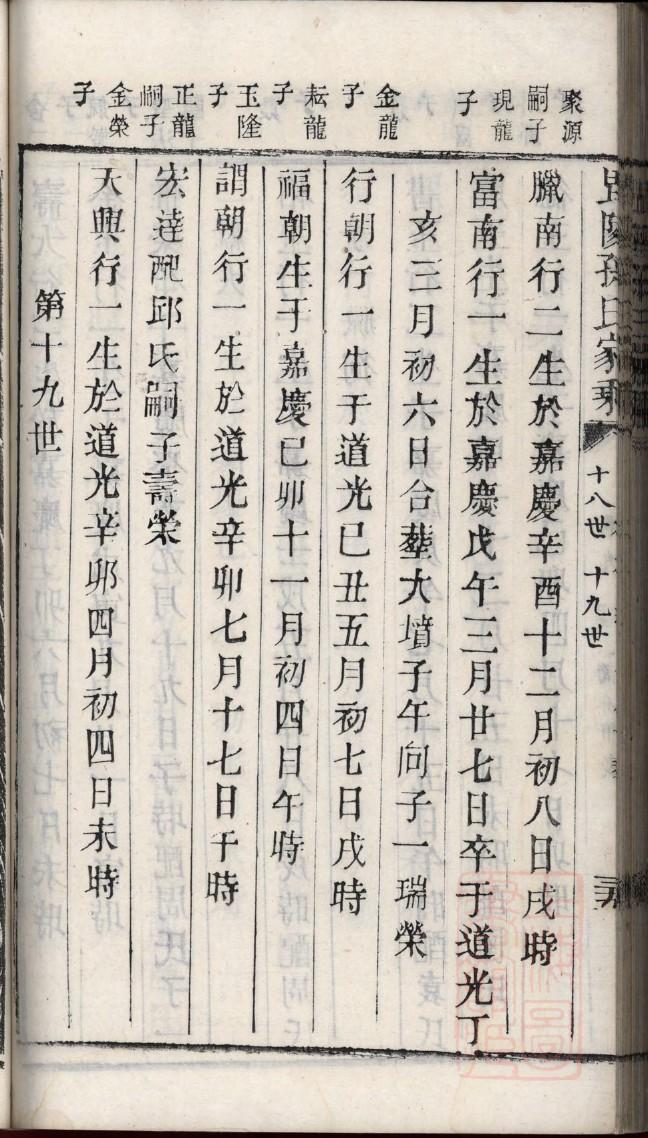 毘陵孫氏家乘
十八世 十九世
聚源
嗣子
臘南行二生於嘉慶辛酉十二月初八日戌時
現龍
子
富南行一生於嘉慶戊午三月廿七日卒于道光丁
亥三月初六日合葬大墳子午向子一瑞榮
金龍
子
行朝行一生于道光已丑五月初七日戌時
耘龍
子
福朝生于嘉慶已卯十一月初四日午時
玉隆
子
謂朝行一生於道光辛卯七月十七日午時
正龍
嗣子
宏達配邱氏嗣子壽榮
金榮
子
大興行一生於道光辛卯四月初四日未時
第十九世